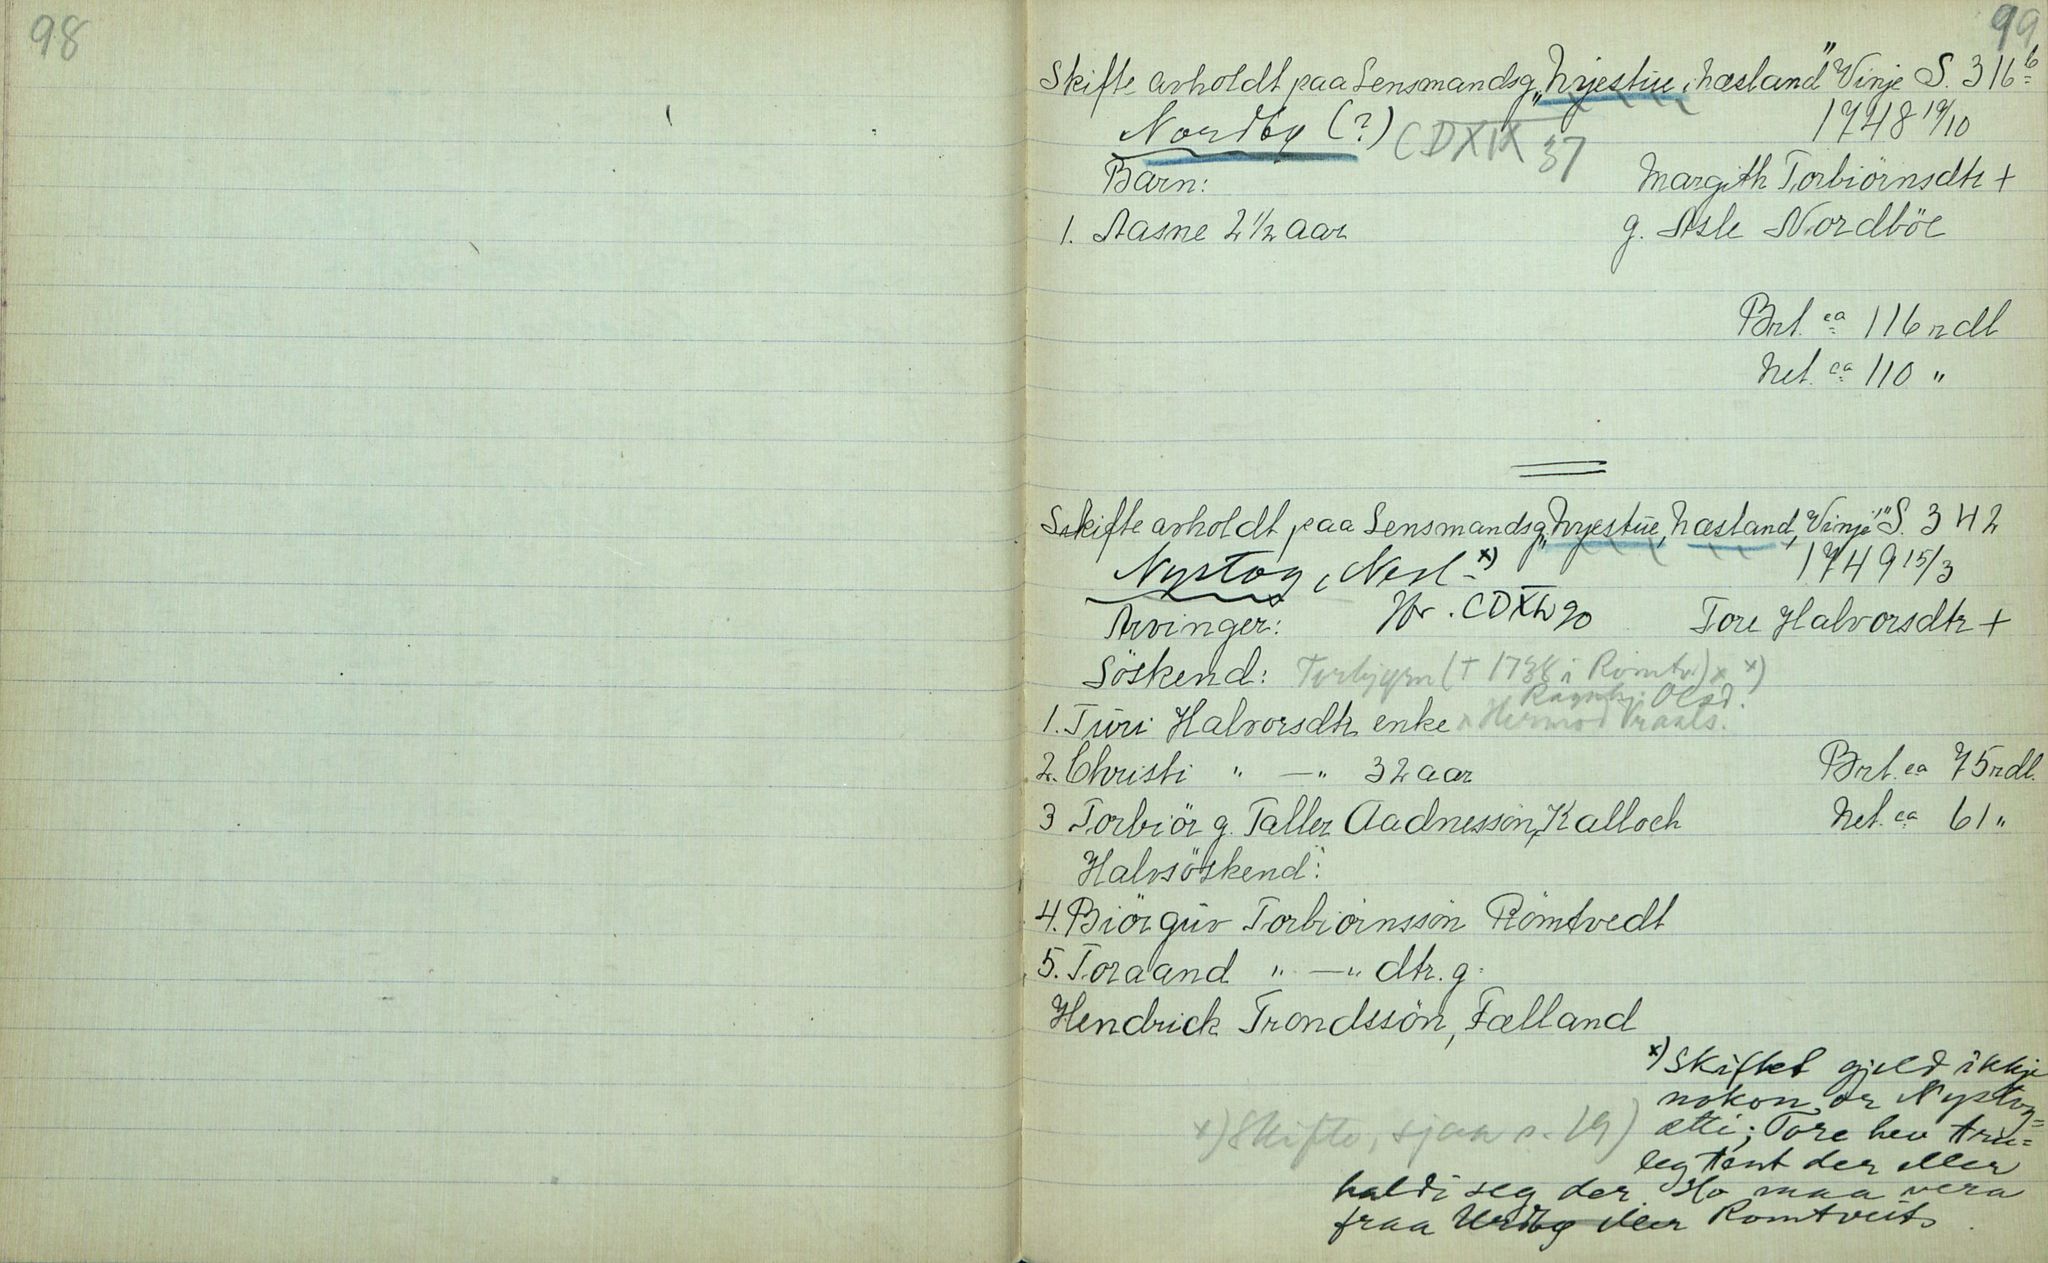 98
99
Skifte avholdt paa Lensmandsg. „Nyestue, Næsland" Vinje S. 316 b
Nordby (?) CDXIX 37 1748 19/10
Barn: Margith Torbiörnsdtr +
1. Aasne 2 1/2 aar g. Asle Nordböe
Brt. ca 116 rdl
Net. ca 110 "
Skifte avholdt paa Lensmandsg. „Nyestue, Næsland, Vinje" S. 342
Nystog, Nesl - x) 1749 15/3
Arvinger: Hr. CDXL 90 Tore Halvorsdtr +
Söskend: Torbjørn († 1738 i Romtv.) x x)
Ragnhi. Olsd.
1. Turi Halvorsdtr enke x Hermod Vraals.
2. Christi " — " 32 aar Brt. ca 75 rdl.
3 Torbiör g. Taller Aadnessön, Kalloch Net. ca 61 "
Halvsöskend:
4. Biörguv Torbiörnssön Römtvedt
5. Toraand " — " dtr. g.
Hendrick Trondssön, Fælland
x) Skiftet gjeld ikkje
nokon or Nystog=
ætti; Tore hev tru=
x) Skifte, sjaa s. 19)
leg tent der eller
haldi seg der. Ho maa vera
fraa Urdbø eller Romtveit